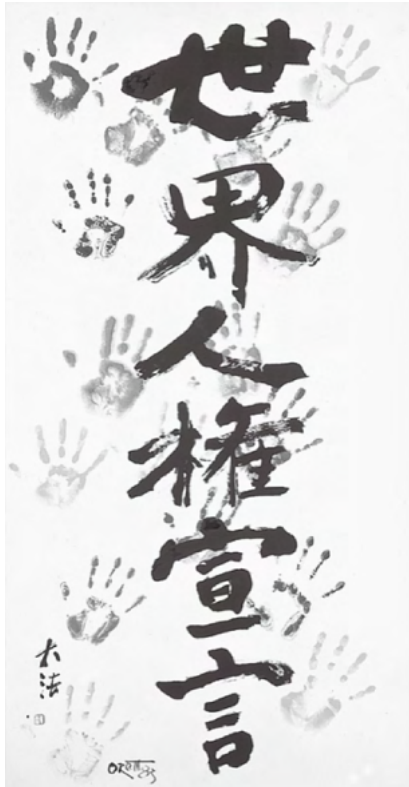 世界人権宣言
大法